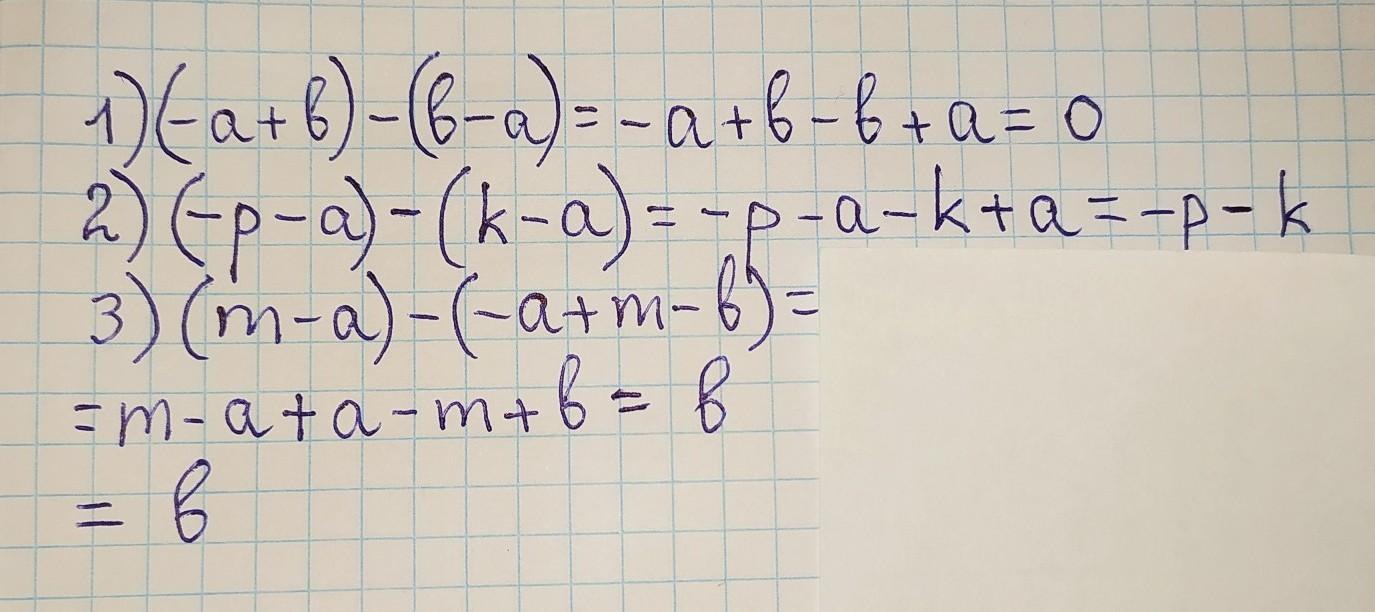 1) (-a+b)-(b-a)=-a+b-b+a=0
2) (-p-a)-(k-a)=-p-a-k+a=-p-k
3) (m-a)-(-a+m-b)=
=m-a+a-m+b=b
=b